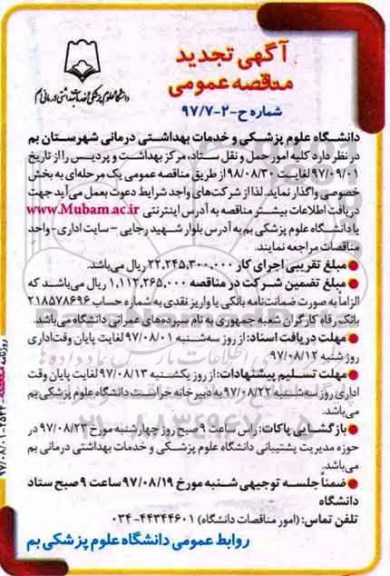 آگهی تجدید
مناقصه عمومی
شماره ح-۲-۹۷/۷
دانشگاه علوم پزشکی و خدمات بهداشتی درمانی بم
دانشگاه علوم پزشکی و خدمات بهداشتی درمانی شهرستان بم
در نظر دارد کلیه امور حمل و نقل ستاد، مرکز بهداشت و پردیس را از تاریخ
۹۷/۰۹/۰۱ لغایت ۹۸/۰۸/۳۰ از طریق مناقصه عمومی یک مرحله‌ای به بخش
خصوصی واگذار نماید. لذا از شرکت‌های واجد شرایط دعوت بعمل می‌آید جهت
دریافت اطلاعات بیشتر مناقصه به آدرس اینترنتی www.Mubam.ac.ir
یا دانشگاه علوم پزشکی بم به آدرس بلوار شهید رجایی - سایت اداری - واحد
مناقصات مراجعه نمایند.
● مبلغ تقریبی اجرای کار ۲۲,۲۴۵,۳۰۰,۰۰۰ ریال می‌باشد.
● مبلغ تضمین شرکت در مناقصه ۱,۱۱۲,۲۶۵,۰۰۰ ریال می‌باشد که
الزاما به صورت ضمانت‌نامه بانکی یا واریز نقدی به شماره حساب ۲۱۸۵۷۸۶۹۶
بانک رفاه کارگران شعبه جمهوری به نام سپرده‌های عمرانی دانشگاه می‌باشد.
● مهلت دریافت اسناد: از روز سه‌شنبه ۹۷/۰۸/۰۱ لغایت پایان وقت اداری
روز شنبه ۹۷/۰۸/۱۲
● مهلت تسلیم پیشنهادات: از روز یکشنبه ۹۷/۰۸/۱۳ لغایت پایان وقت
اداری روز سه‌شنبه ۹۷/۰۸/۲۲ به دبیرخانه حراست دانشگاه علوم پزشکی بم
می‌باشد.
● بازگشایی پاکات: راس ساعت ۹ صبح روز چهارشنبه مورخ ۹۷/۰۸/۲۳ در
حوزه مدیریت پشتیبانی دانشگاه علوم پزشکی و خدمات بهداشتی درمانی بم
می‌باشد.
● ضمنا جلسه توجیهی شنبه مورخ ۹۷/۰۸/۱۹ ساعت ۹ صبح ستاد
دانشگاه
تلفن تماس: (امور مناقصات دانشگاه) ۴۴۳۴۴۶۰۱-۰۳۴
روابط عمومی دانشگاه علوم پزشکی بم